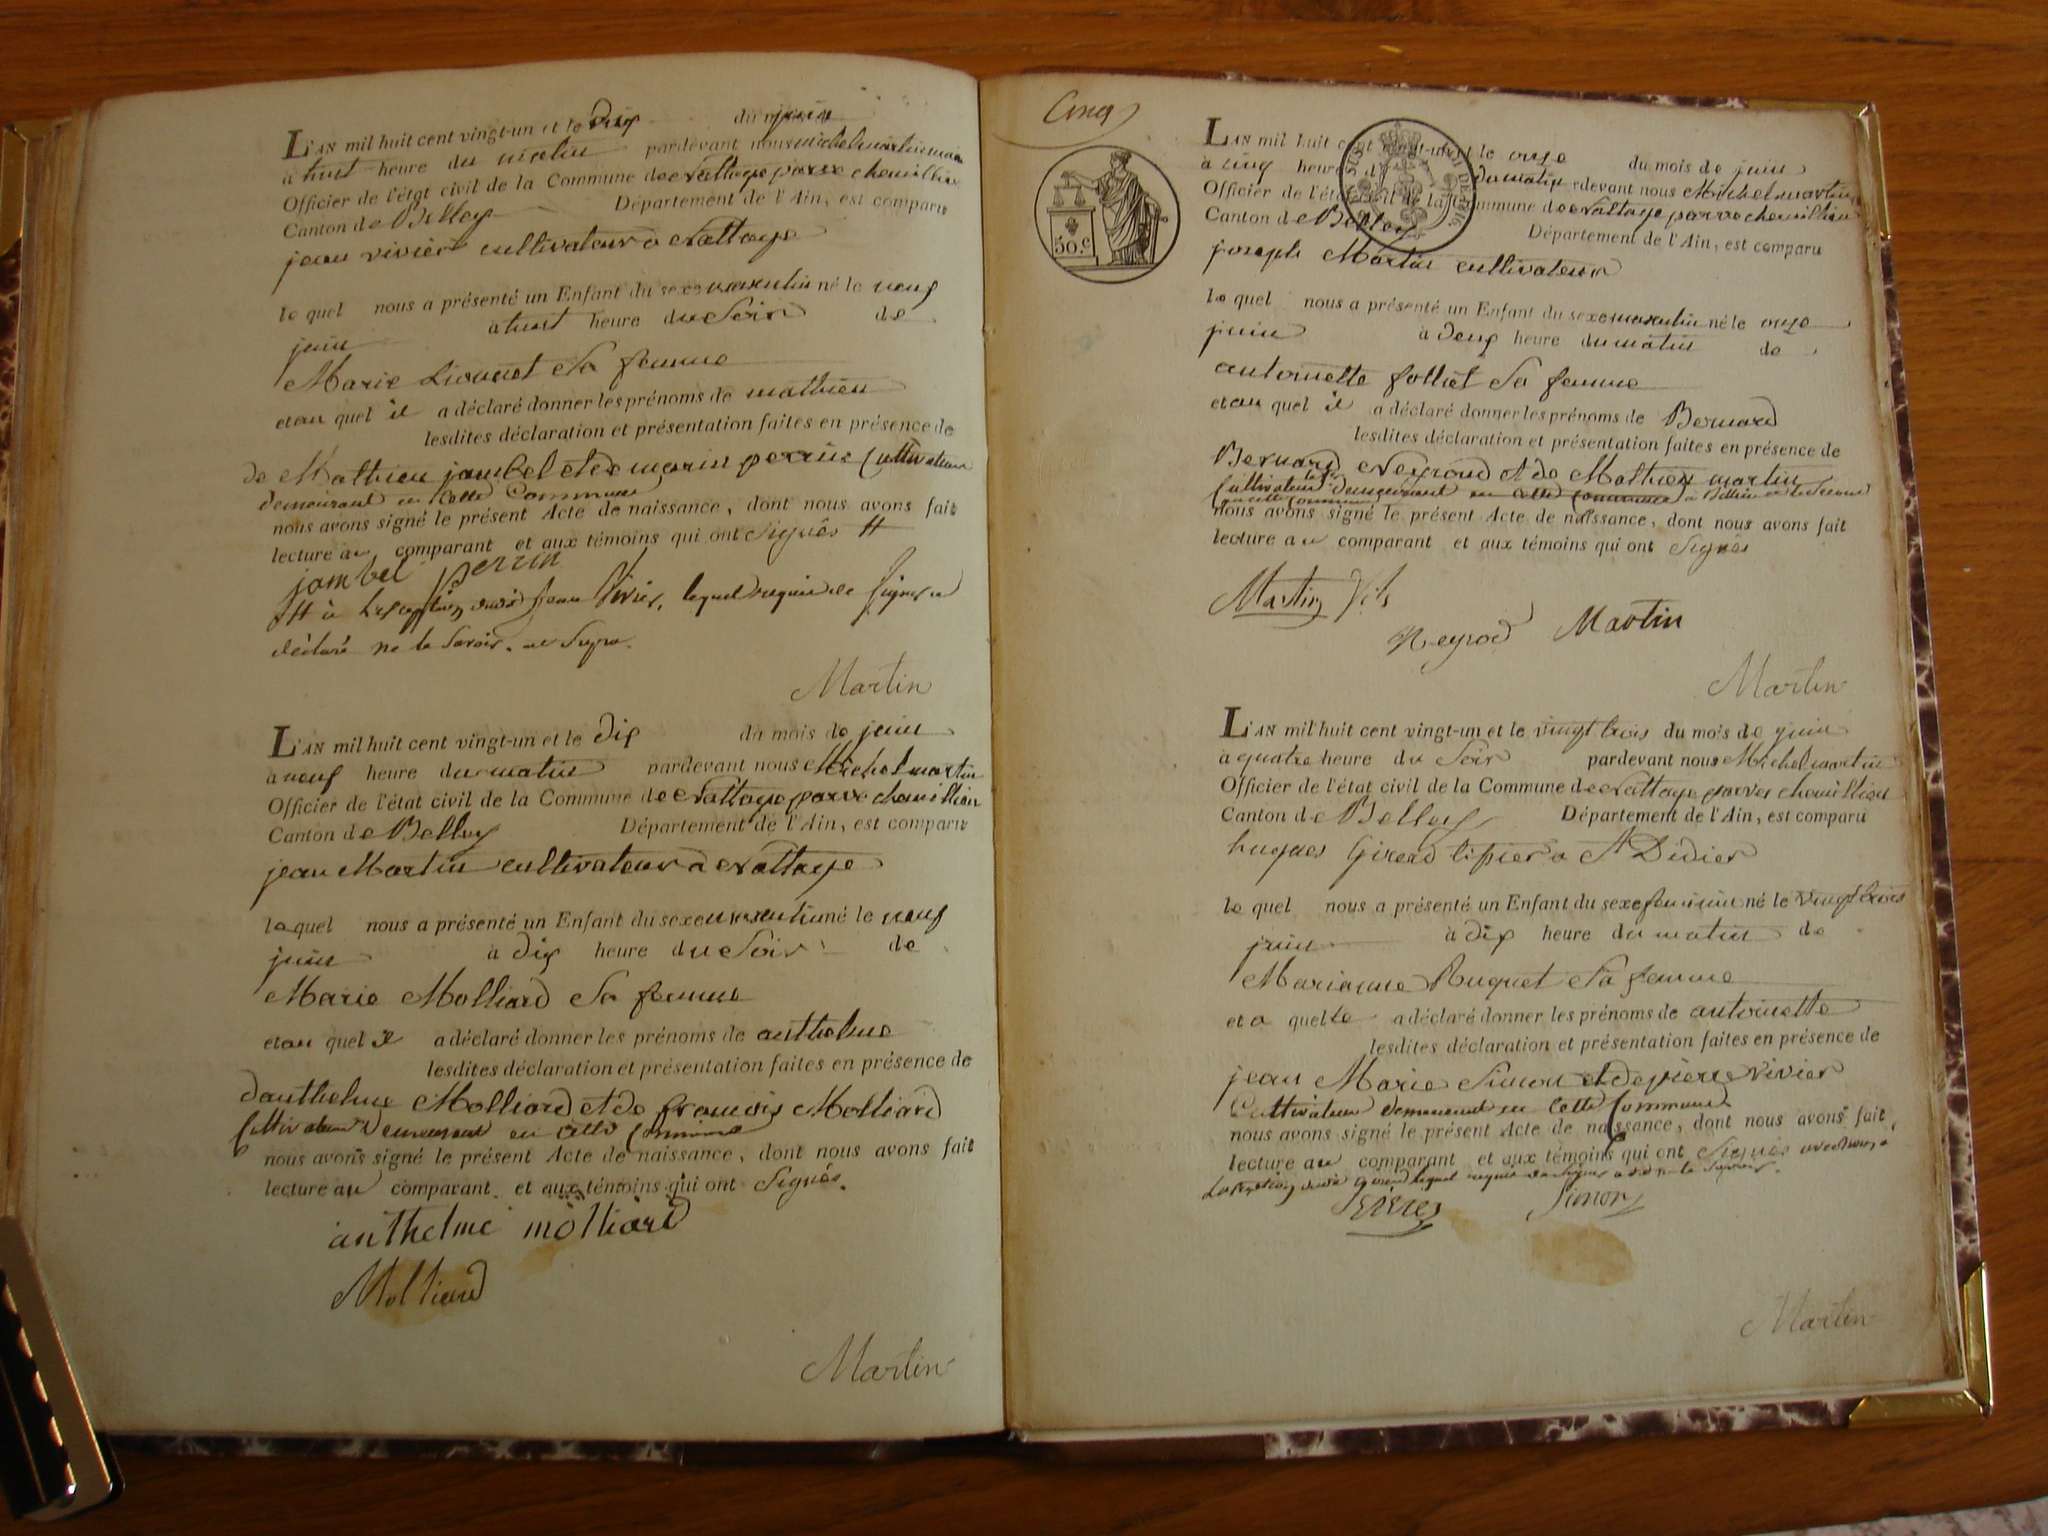 L'AN mil huit cent vingt-un et le dix du mois de juin
a huit heure du matin pardevant nous michel martin maire
Officier de l'état civil de la Commune de Nattage parve chemillieu
Canton de Belley Département de l'Ain, est comparu
jean vivier cultivateur a Nattage
le quel nous a présenté un Enfant du sexe masculin né le neuf
juin a huit heure du Soir de
Marie Sa femme
et au quel il a déclaré donner les prénoms de mathieu
lesdites déclaration et présentation faites en présence de
de Mathieu jambel et de marin perrin Cultivateurs
demeurant en Cette Commune
nous avons signé le présent Acte de naissance, dont nous avons fait
lecture au comparant et aux témoins qui ont Signés #
jambel perrin
# à Lexception dudit jean Vivier, lequel requis de Signer a
déclaré ne le Savoir.
Martin
L'AN mil huit cent vingt-un et le dix du mois de juin
a neuf heure du matin pardevant nous Michel martin
Officier de l'état civil de la Commune de Nattage parve chemillieu
Canton de Belley Département de l'Ain, est comparu
jean Martin cultivateur a Nattage
le quel nous a présenté un Enfant du sexe masculin né le neuf
juin à dix heure du Soir de
Marie Molliard Sa femme
et au quel il a déclaré donner les prénoms de anthelme
lesdites déclaration et présentation faites en présence de
danthelme Molliard et de francois Molliard
Cultivateurs Demeurant en Cette Commune
nous avons signé le présent Acte de naissance, dont nous avons fait
lecture au comparant et aux témoins qui ont Signés.
anthelme molliard
Molliard
Martin
Cinq
50.c
L'AN mil huit cent vingt-un et le onze du mois de juin
à cinq heure du matin pardevant nous Michel martin
Officier de l'état civil de la Commune de Nattage parve chemillieu
Canton de Belley Département de l'Ain, est comparu
joseph Martin cultivateur
le quel nous a présenté un Enfant du sexe masculin né le onze
juin à deux heure du matin de
antoinette folliet Sa femme
et au quel il a déclaré donner les prénoms de Bernard
lesdites déclaration et présentation faites en présence de
Bernard Neyroud et de Mathieu martin
Cultivateur Demeurant en Cette Commune
nous avons signé le présent Acte de naissance, dont nous avons fait
lecture au comparant et aux témoins qui ont Signés
Martin fils
Neyrod Martin
Martin
L'AN mil huit cent vingt-un et le vingt trois du mois de juin
a quatre heure du Soir pardevant nous Michel martin
Officier de l'état civil de la Commune de Nattage parves chemillieu
Canton de Belley Département de l'Ain, est comparu
hugues Gireud tissier a St Didier
le quel nous a présenté un Enfant du sexe feminin né le vingt trois
juin à dix heure du matin de
Marianne Ruguet Sa femme
et a quelle a déclaré donner les prénoms de antoinette
lesdites déclaration et présentation faites en présence de
jean Marie Simon et de pierre vivier
Cultivateurs demeurant en Cette Commune
nous avons signé le présent Acte de naissance, dont nous avons fait
lecture au comparant et aux témoins qui ont Signés avec nous, a
Simon
Martin